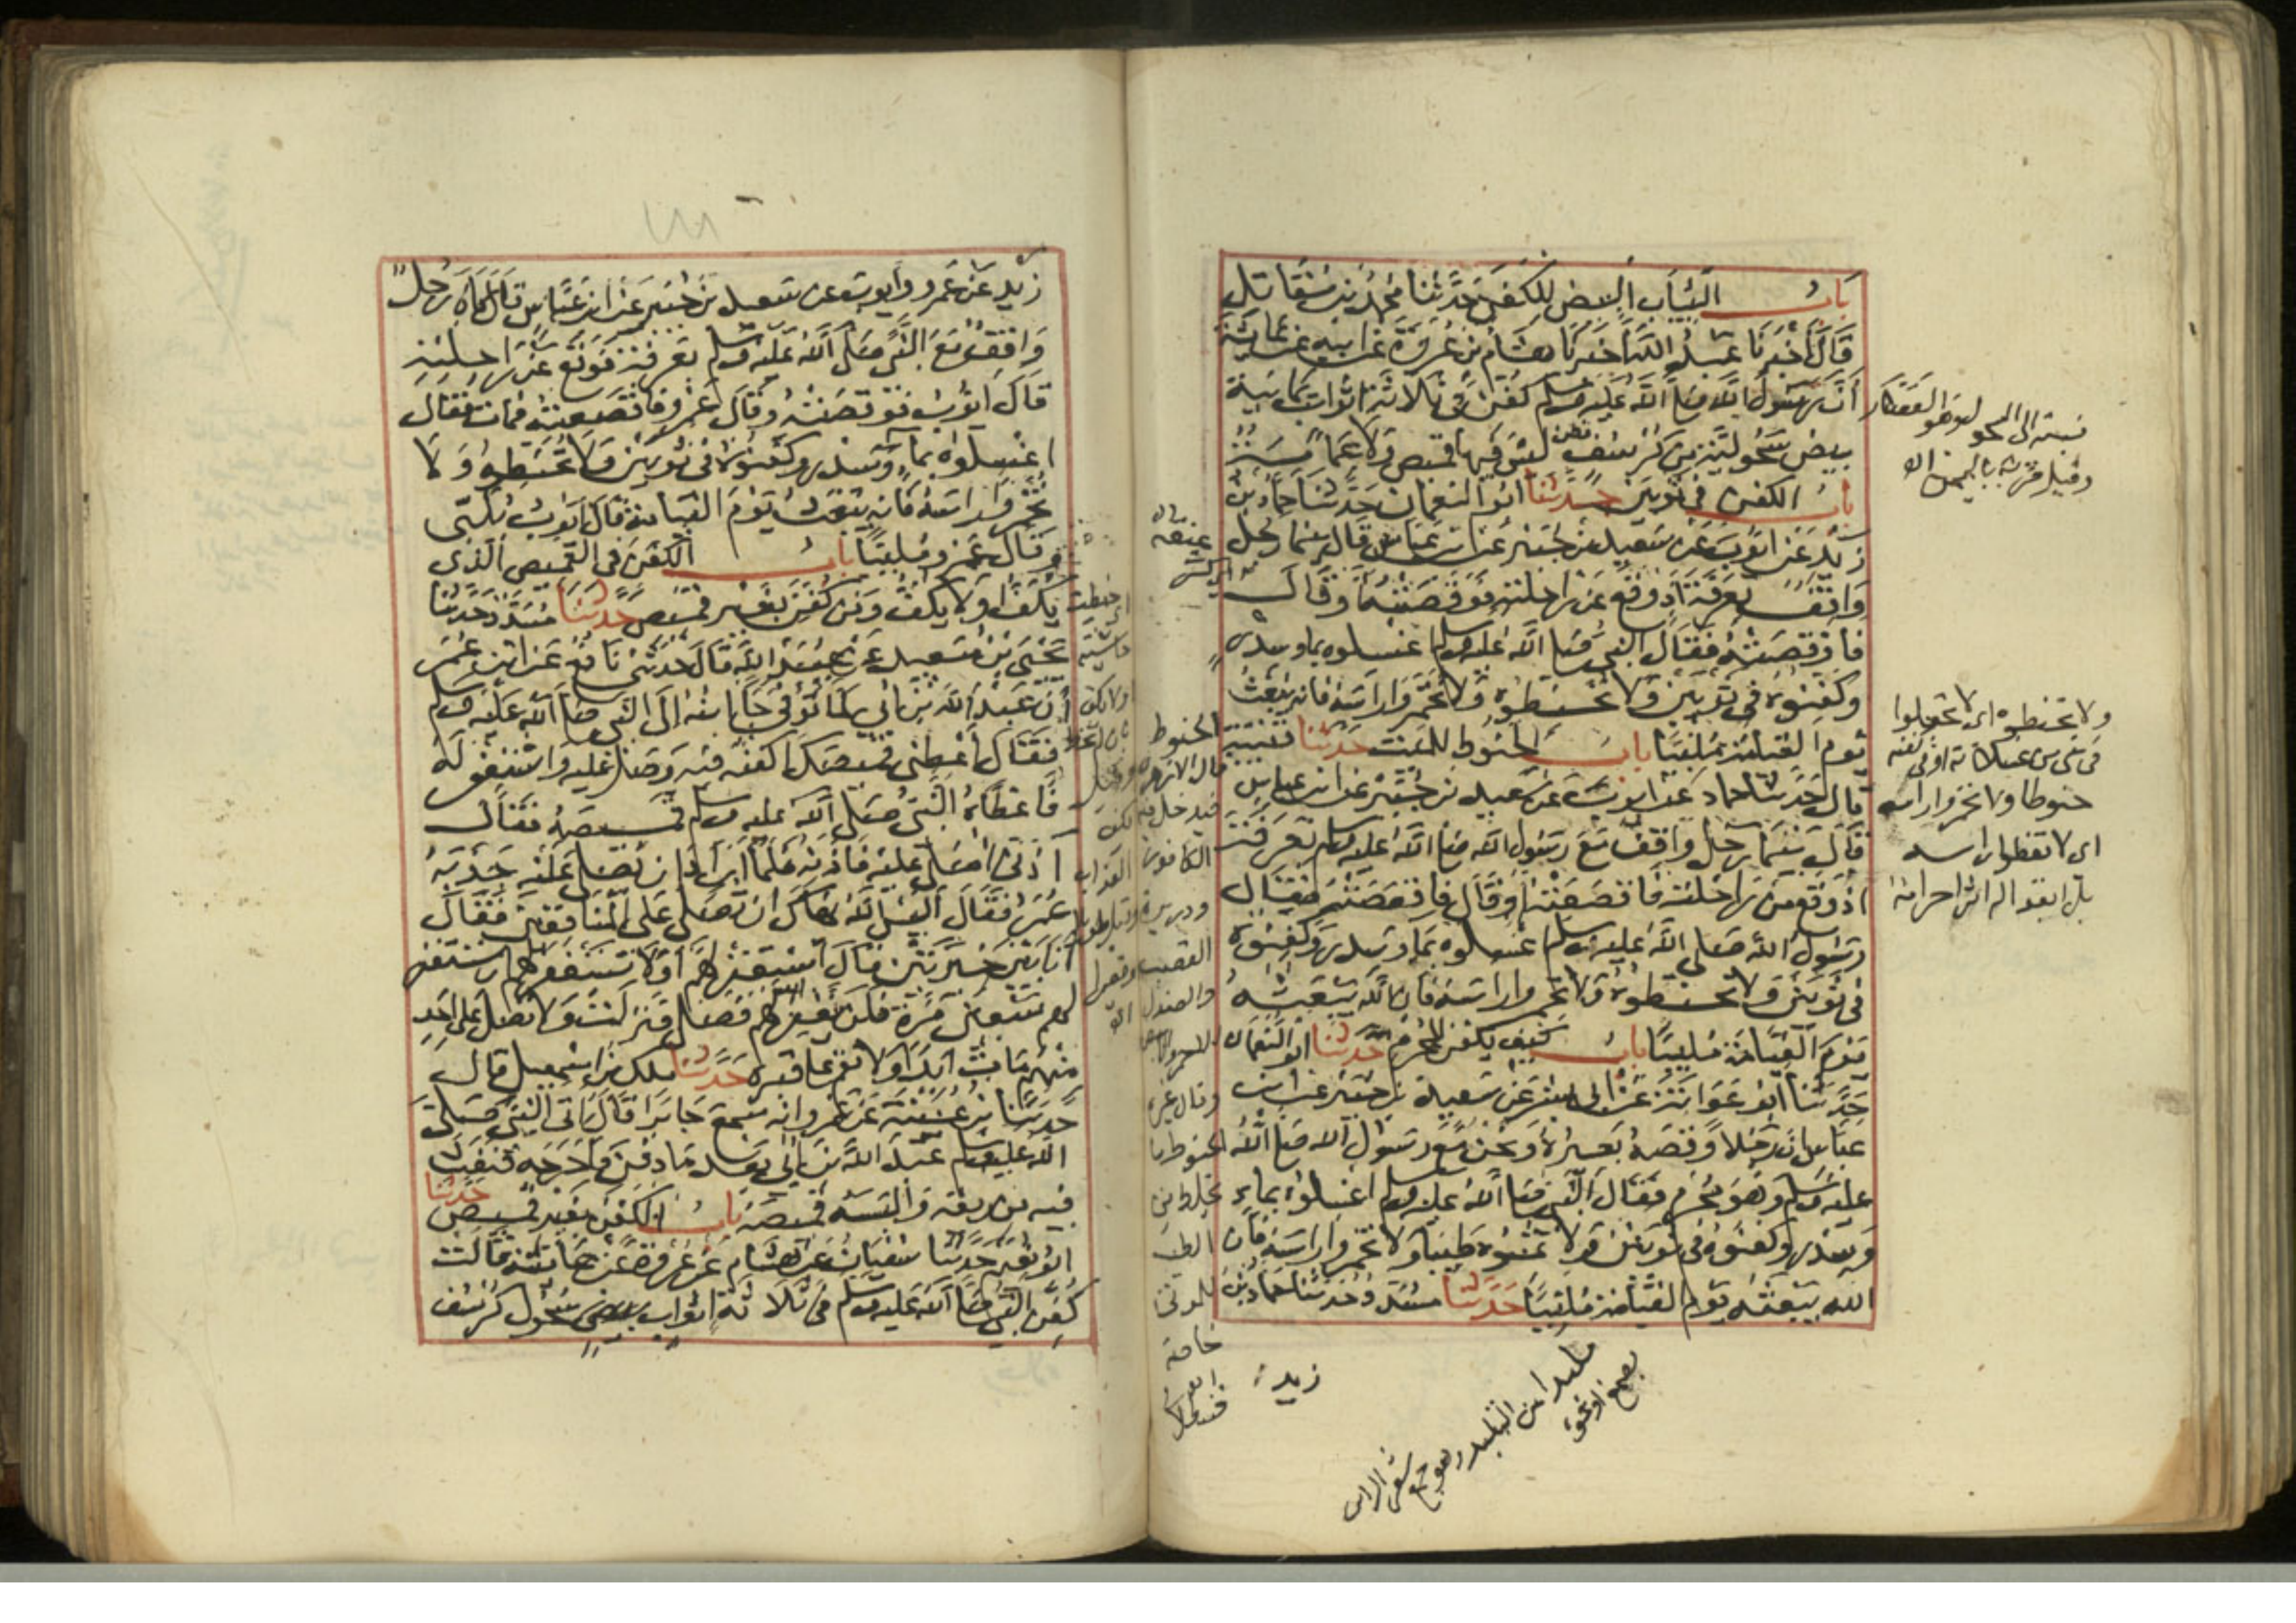 باب الثياب البيض للكفن حدثنا محمد بن مقاتل
قال اخبرنا عبد الله اخبرنا هشام بن عروة عن ابيه عن عائشة
أن رسول الله صلى الله عليه وسلم كفن في ثلاثة اثواب يمانية
بيض سحولية من كرسف ليس فيها قميص ولا عمامة
باب الكفن في ثوبين حدثنا ابو النعمان حدثنا حماد بن
زيد عن ايوب عن سعيد بن جبير عن ابن عباس قال بينما رجل
واقف بعرفة اذ وقع عن راحلته فوقصته او قال
فاوقصته فقال النبي صلى الله عليه وسلم اغسلوه بماء وسدر
وكفنوه في ثوبين ولا تحنطوه ولا تخمروا راسه فانه يبعث
يوم القيامة ملبيا باب الحنوط للميت حدثنا قتيبة
قال حدثنا حماد عن ايوب عن سعيد بن جبير عن ابن عباس
قال بينما رجل واقف مع رسول الله صلى الله عليه وسلم بعرفة
اذ وقع من راحلته فاقصعته او قال فاقعصته فقال
رسول الله صلى الله عليه وسلم اغسلوه بماء وسدر وكفنوه
في ثوبين ولا تحنطوه ولا تخمروا راسه فان الله يبعثه
يوم القيامة ملبيا باب كيف يكفن المحرم حدثنا ابو النعمان
حدثنا ابو عوانة عن ابي بشر عن سعيد بن جبير عن ابن
عباس ان رجلا وقصه بعيره ونحن مع رسول الله صلى الله
عليه وسلم وهو محرم فقال النبي صلى الله عليه وسلم اغسلوه بماء
وسدر وكفنوه في ثوبين ولا تمسوه طيبا ولا تخمروا راسه فان
الله يبعثه يوم القيامة ملبيا حدثنا مسدد حدثنا حماد بن
زيد
نسبته الى السحول وهو القصار
وقيل قرية باليمن
ولا تحنطوه اي لا تجعلوا
في شي من غسلاته او في كفنه
حنوطا ولا تخمروا راسه
اي لا تغطوا راسه
بل ابقوا له اثر احرامه
ملبدا من التلبيد وهو جمع شعر الراس
بصمغ او نحوه
الحنوط
قال الازهري
يدخل فيه
الكافور
وذريرة
القصب
والصندل
الاحمر
وقال غيره
الحنوط ما
يخلط من
الطيب
للموتى
خاصة
زيد عن عمرو وأيوب عن سعيد بن جبير عن ابن عباس قال كان رجل
واقف مع النبي صلى الله عليه وسلم بعرفة فوقع عن راحلته
قال ايوب فوقصته وقال عمرو فاقصعته فمات فقال
اغسلوه بماء وسدر وكفنوه في ثوبين ولا تحنطوه ولا
تخمروا راسه فانه يبعث يوم القيامة قال ايوب يلبي
وقال عمرو ملبيا باب الكفن في القميص الذي
يكف او لا يكف ومن كفن بغير قميص حدثنا مسدد حدثنا
يحيى بن سعيد عن عبيد الله قال حدثني نافع عن ابن عمر
أن عبد الله بن ابي لما توفي جاء ابنه الى النبي صلى الله عليه وسلم
فقال أعطني قميصك اكفنه فيه وصل عليه واستغفر له
فاعطاه النبي صلى الله عليه وسلم قميصه فقال
اذني اصلي عليه فاذنه فلما اراد ان يصلي عليه جذبه
عمر فقال اليس الله نهاك ان تصلي على المنافقين فقال
أنا بين خيرتين قال استغفر لهم او لا تستغفر لهم ان تستغفر
لهم سبعين مرة فلن يغفر الله لهم فصلى فنزلت ولا تصل على احد
منهم مات ابدا ولا تقم على قبره حدثنا ملك بن اسمعيل قال
حدثنا ابن عيينة عن عمرو انه سمع جابرا قال اتى النبي صلى
الله عليه وسلم عبد الله بن ابي بعد ما دفن فاخرجه فنفث
فيه من ريقه والبسه قميصه باب الكفن بغير قميص حدثنا
ابو نعيم حدثنا سفيان عن هشام عن عروة عن عائشة قالت
كفن النبي صلى الله عليه وسلم في ثلاثة اثواب بيض سحول كرسف